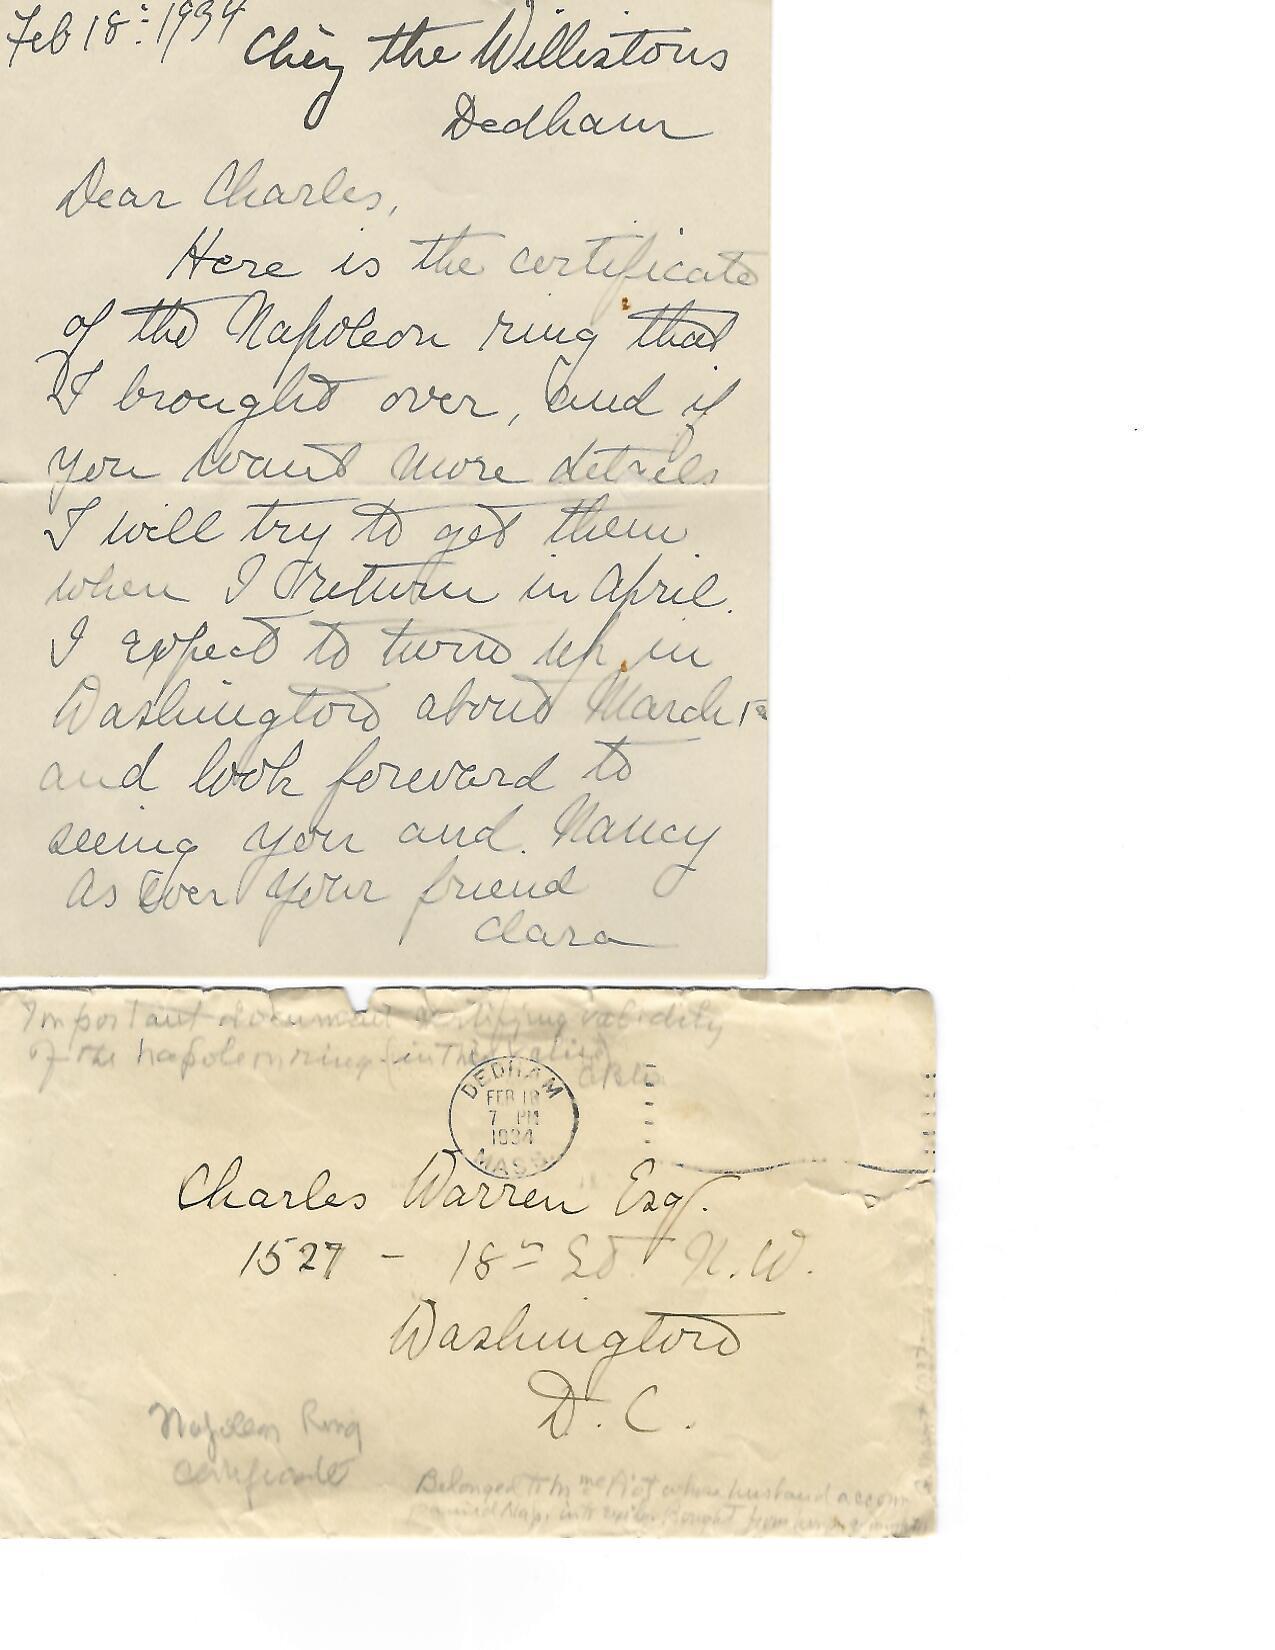 Feb 18th 1934
Chez the Willistons
Dedham
Dear Charles,
Here is the certificate
of the Napoleon ring that
I brought over, and if
you want more details
I will try to get them
when I return in April.
I expect to turn up in
Washington about March 1st
and look foreward to
seeing you and Nancy
As Ever your friend
Clara
Important document certifying validity
of the Napoleon ring (in the
DEDHAM
FEB 18
7 PM
1934
MASS.
Charles Warren Esq.
1527 - 18th St. N.W.
Washington
D. C.
Napoleon Ring
Certificate
Belonged to Mme whose husband accom
panied Nap. into exile. Bought from